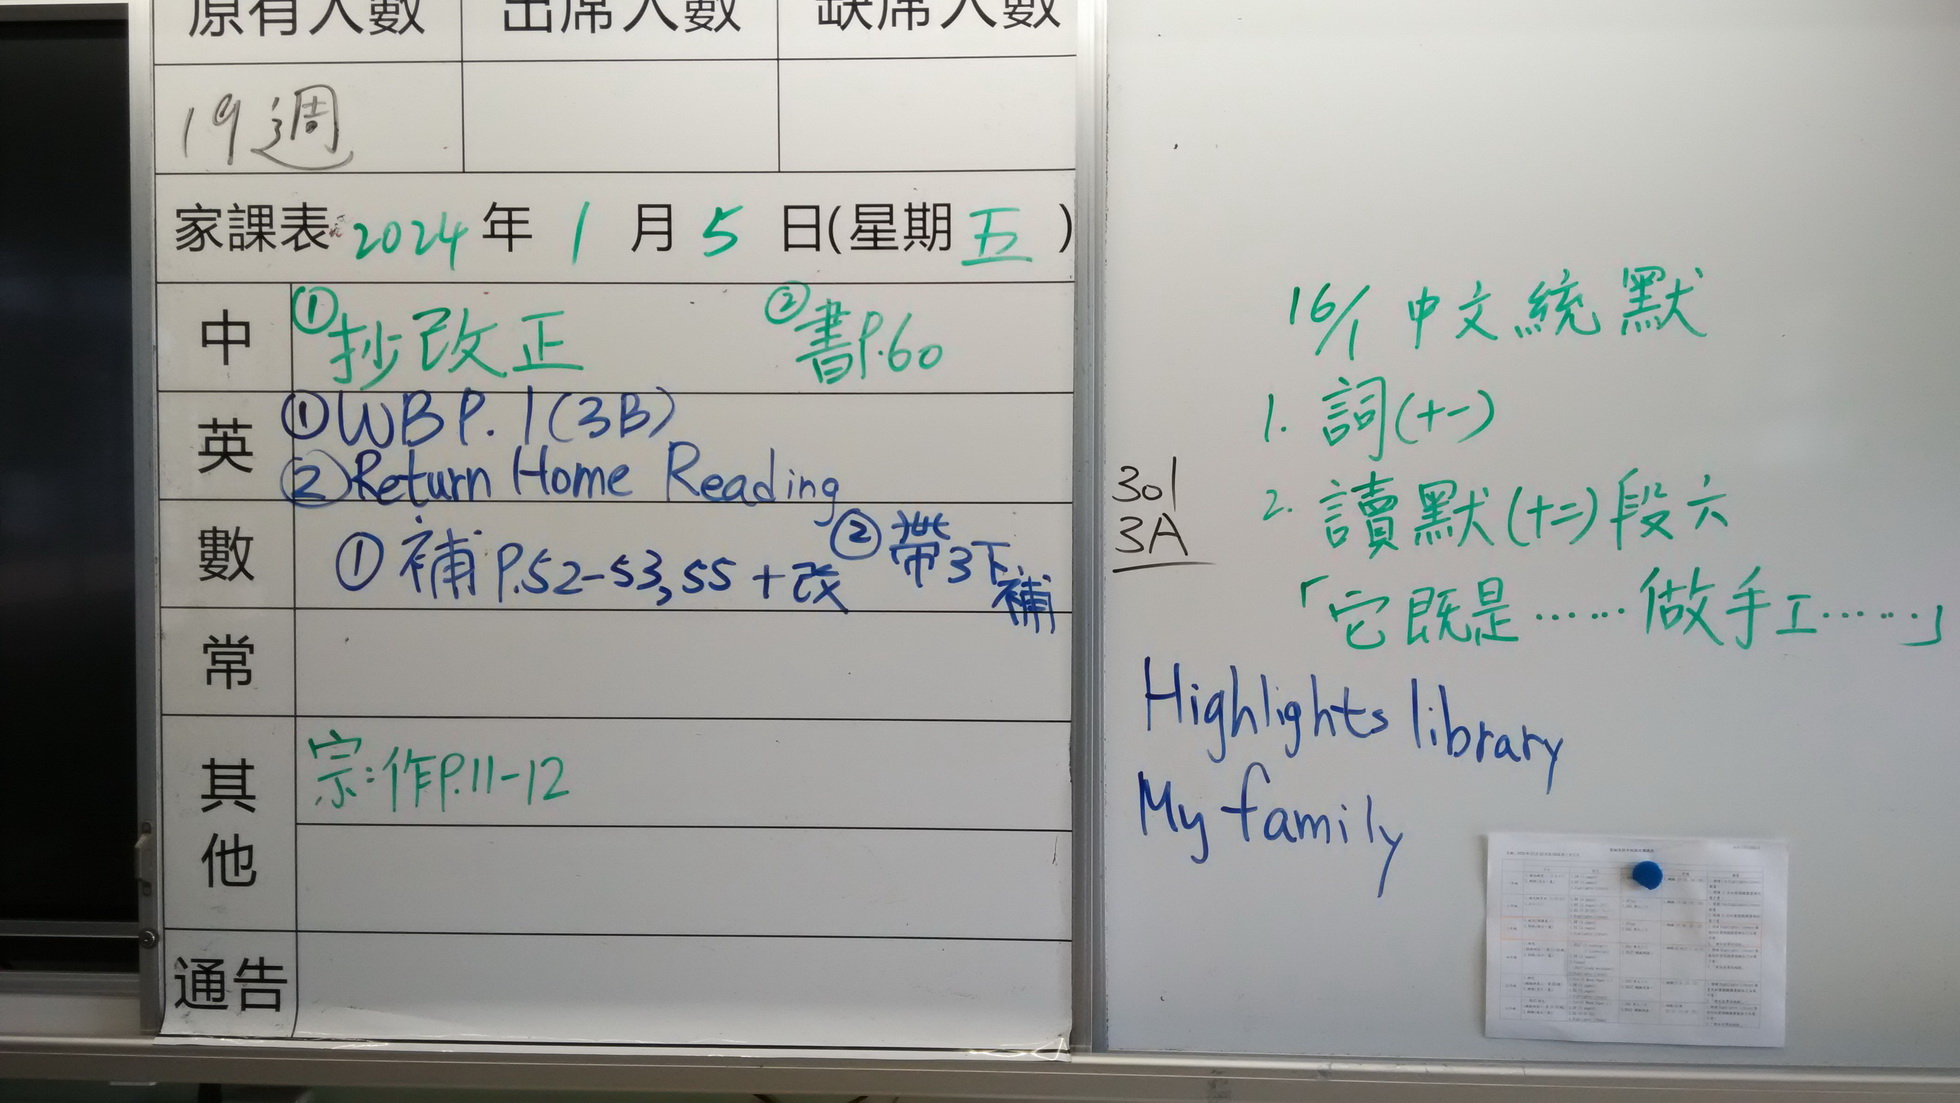 原有人數 出席人數 缺席人數
19週
家課表 2024 年 1 月 5 日(星期五)
中 ①抄改正 ②書P.60
英 ①WB P.1(3B)
②Return Home Reading
數 ①補P.52-53,55+改 ②帶3下補
常
其他 宗:作P.11-12
通告
16/1 中文統默
1. 詞(十一)
2. 讀默(十二)段六
「它既是……做手工……」
301
3A
Highlights library
My family